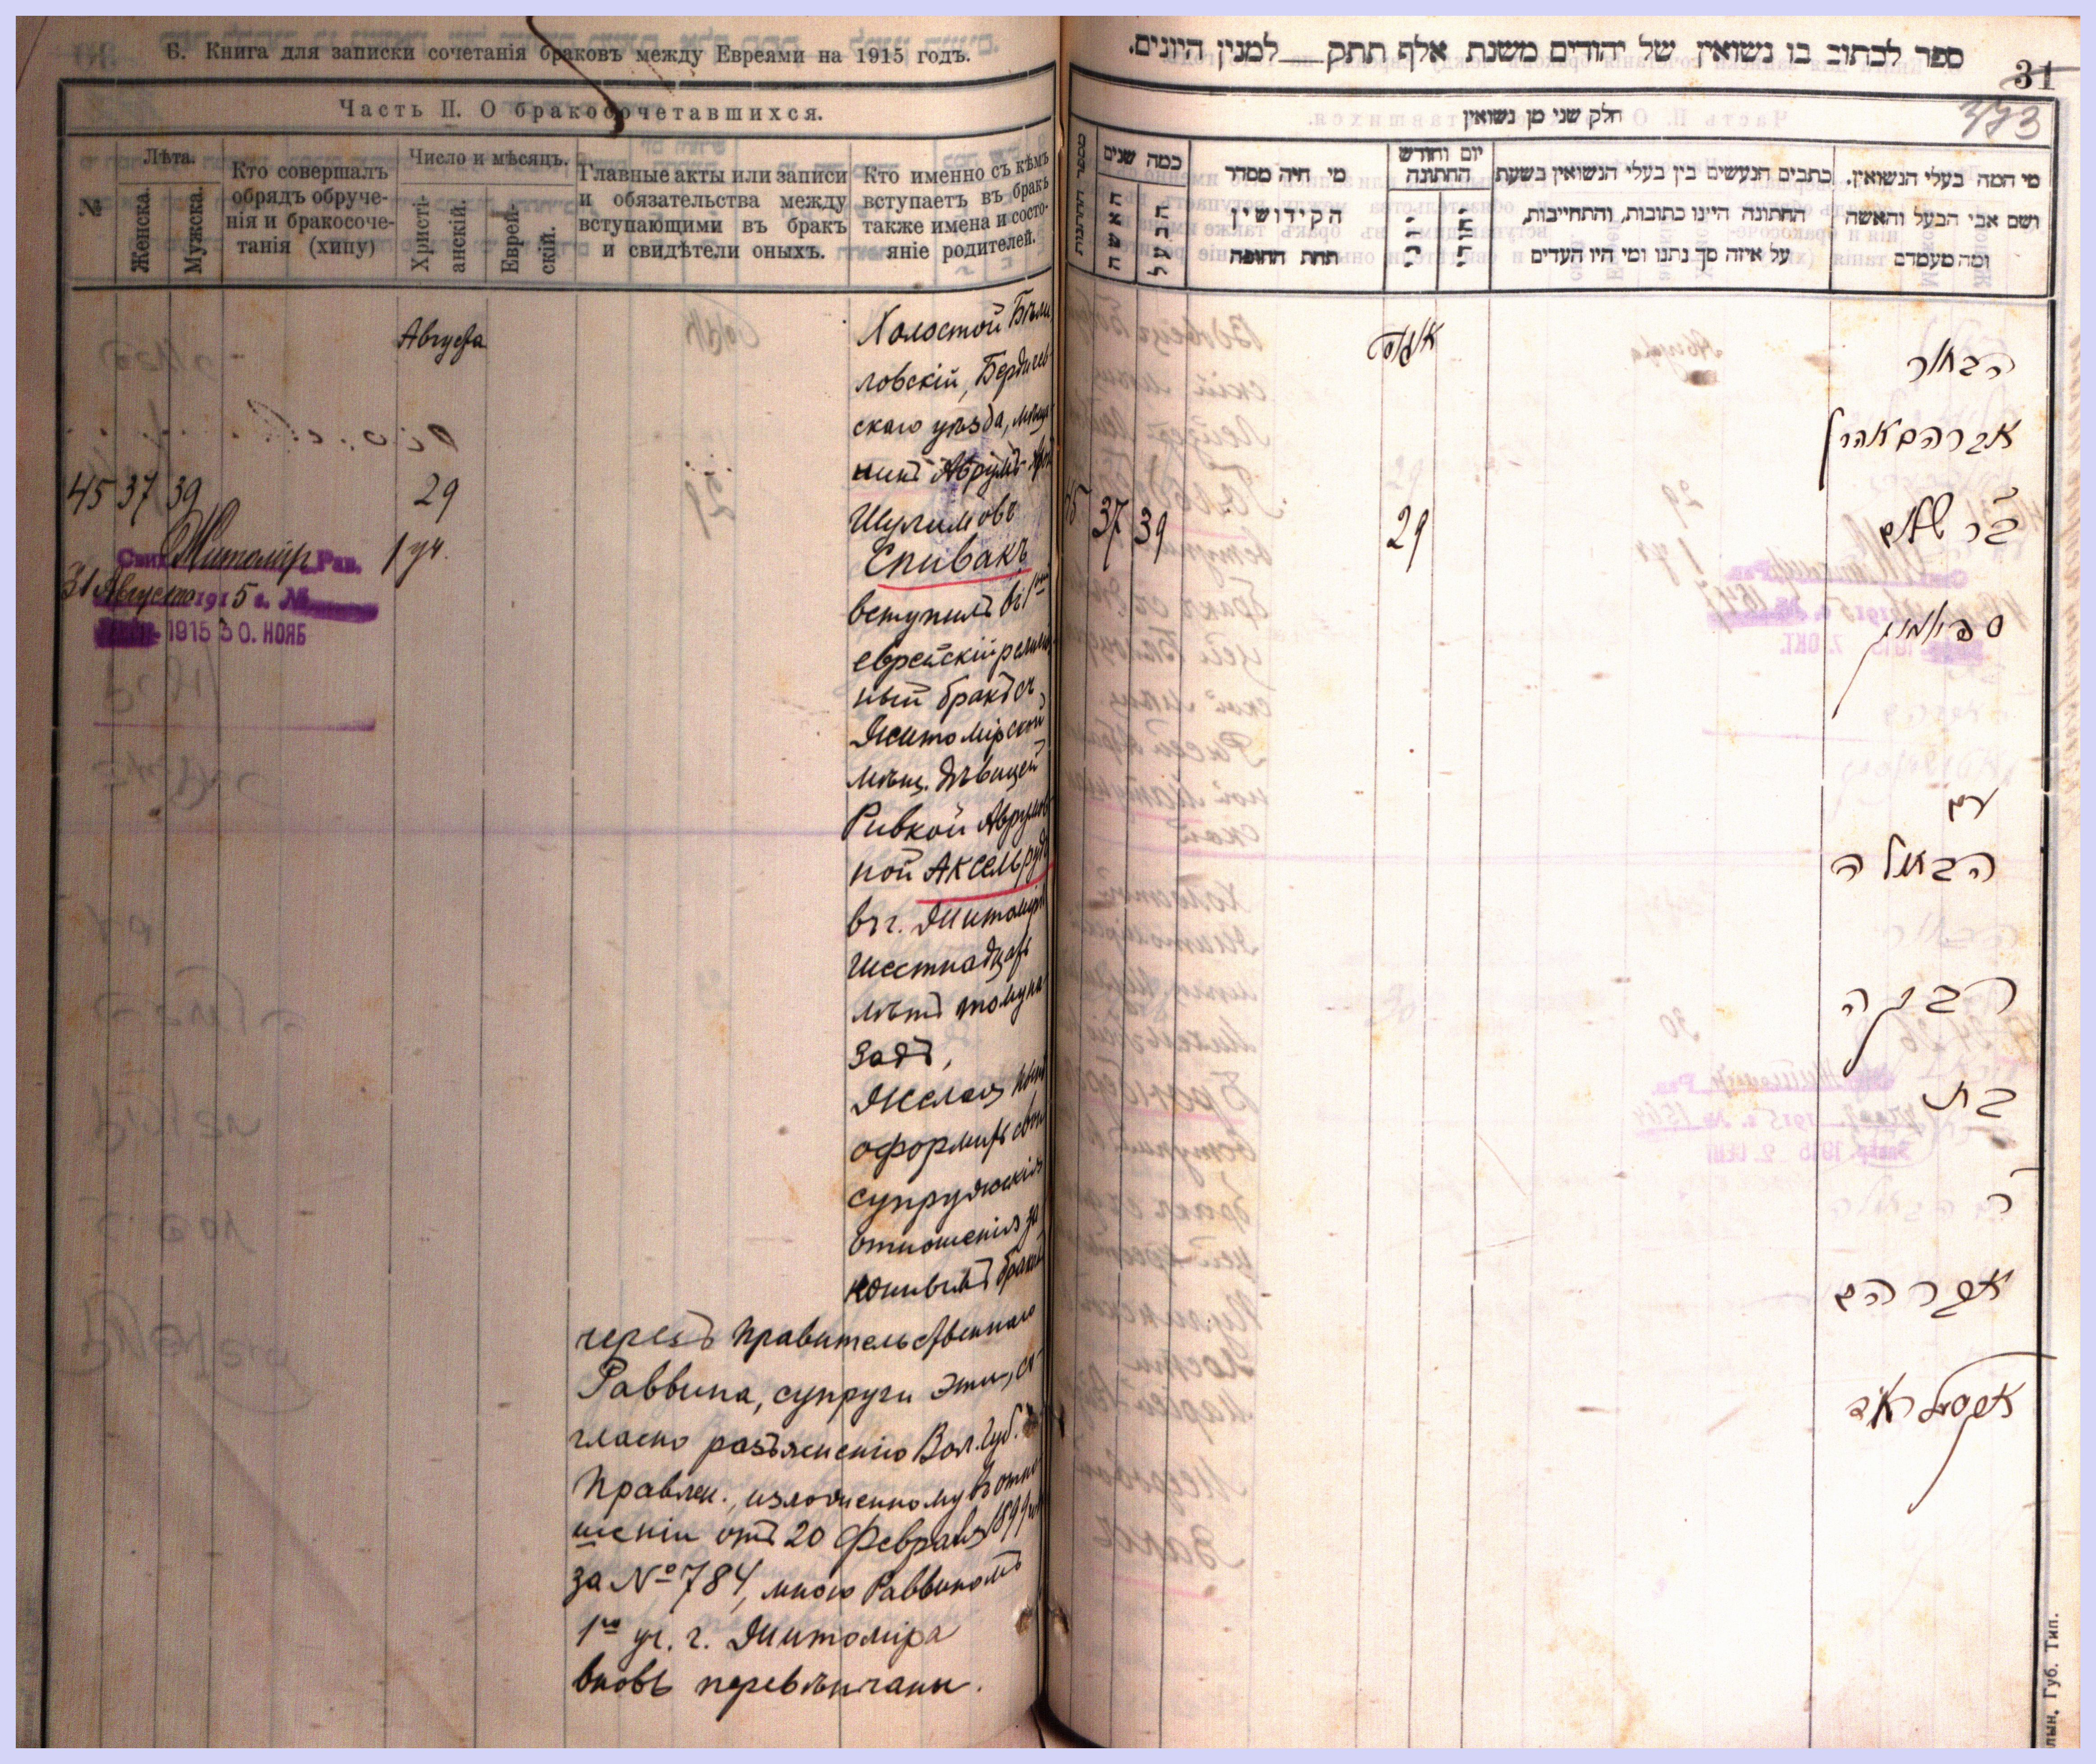 Б. Книга для записки сочетанія браковъ между Евреями на 1915 годъ.
Часть II. О бракосочетавшихся.
№
Лѣта.
Женска.
Мужска.
Кто совершалъ
обрядъ обруче-
нія и бракосоче-
танія (хипу)
Число и мѣсяцъ.
Христі-
анскій.
Еврей-
скій.
Главные акты или записи
и обязательства между
вступающими въ бракъ
и свидѣтели оныхъ.
Кто именно съ кѣмъ
вступаетъ въ бракъ
также имена и состо-
яніе родителей.
Августа
45 37 39 29
1 уч.
Свид. Житомір. Рав.
31 Августа 1915 г. №
1915 30. НОЯБ
Холостой Бѣли
ловскій, Бердичев-
скаго уѣзда, мѣща
нинъ Аврумъ-
Шулимовъ
Спивакъ
вступилъ въ 1ый
еврейскій религіоз
ный бракъ съ
Житомірской
мѣщ. дѣвицей
Ривкой Аврумов
ной Аксельрудъ
въ г. Житомірѣ
шестнадцать
лѣтъ тому на
задъ,
Желая нынѣ
оформить свои
супружескія
отношенія за
коннымъ бракомъ
черезъ Правительственнаго
Раввина, супруги эти, со-
гласно разъясненію Вол. Губ.
Правлен., изложенному въ отно
шеніи отъ 20 Февраля 1899
за № 784, мною Раввиномъ
1го уч. г. Житоміра
вновь перевѣнчаны.
ספר לכתוב בו נשואין של יהודים משנת אלף תתק למנין היונים.
31
373
חלק שני מן נשואין
מספר החתונות
כמה שנים
האשה
הבעל
מי היה מסדר
הקידושין
תחת החופה
יום וחודש
החתונה
כתבים הנעשים בין בעלי הנשואין בשעת
החתונה היינו כתובות, והתחייבות,
על איזה סך נתנו ומי היו העדים
מי המה בעלי הנשואין.
ושם אבי הבעל והאשה
ומה מעמדם
אווגוסט
45 37 39 29
הבחור
אברהם אהרן
בר שלום
ספיוואק
עם
הבתולה
רבקה
בת
ר׳
אברהם
אקסעלראד
лын. Губ. Тип.